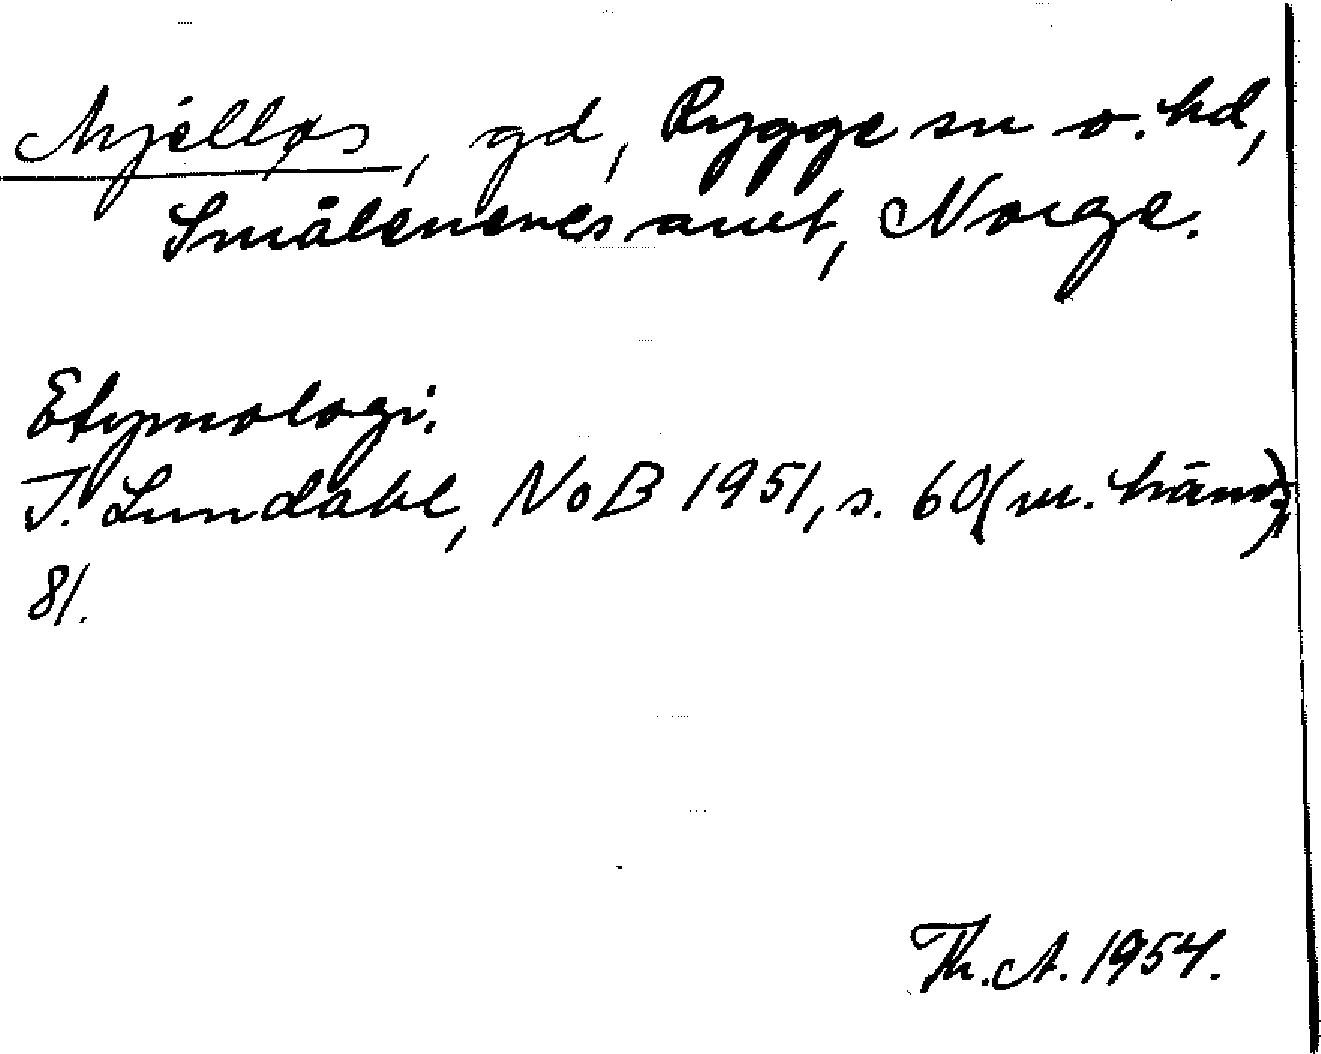 Mjelløs, gd, Rygge sn o. hd,
Smålenenes amt, Norge.
Etymologi.
I. Lundahl, NoB 1951, s. 60 (m. hänv.),
81.
Th. A. 1954.